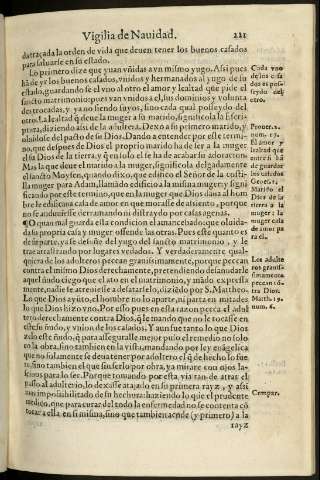 Vigilia de Nauidad. 221
datraçada la orden de vida que deuen tener los buenos casados
para saluarse en su estado.
Lo primero dize que yuan vñidas a vn mismo yugo. Assi pues
hã de yr los buenos casados, vnidos y hermanados al yugo de su
estado, guardando se el vno al otro el amor y lealtad que pide el
sancto matrimonio: pues van vnidos a el, sus dominios y voluntades
trocadas, y ya no siendo suyos, sino cada qual posseydo del
otro. La lealtad q̃ deue la muger a su marido, significòla la Escriptura,
diziendo assi de la adultera. Dexò a su primero marido, y
oluidose del pacto de su Dios. Dando a entender por este termino,
que despues de Dios el proprio marido ha de ser a la muger
el su Dios de la tierra, y q̃ en solo el se ha de acabar su adoracion.
Mas la que deue el marido a la muger, significòla delgadamente
el sancto Moysen, quando dixo, que edificò el Señor de la costilla
muger para Adam, llamãdo edificio a la misma muger: y significando
por este termino, que en la muger que Dios daua al hombre
le edificaua casa de amor en que morasse de assiento, porque
no se anduuiesse derramando ni distraydo por casas agenas.
¶O quan mal guarda esta condicion el amancebado: que oluidada
su propria casa y muger offende las otras. Pues este quanto es
de su parte, ya se desuñe del yugo del sancto matrimonio, y le
trae atrauillando por lugares vedados. Y verdaderamente qualquiera
de los adulteros peccan grauissimamente, porque peccan
contra el mismo Dios derechamente, pretendiendo desanudar le
aquel ñudo ciego que el ato en el matrimonio, y mãdo expressamente,
nadie se atreuiesse a desatarselo, diziẽdo por S. Mattheo.
Lo que Dios ayũto, el hombre no lo aparte, ni parta en mitades
lo que Dios hizo vno. Por esso pues en esta razon pecca el adultero
derechamente contra Dios, q̃ le mando que no le tocasse en
este su ñudo, y vnion de los casados. Y aun fue tanto lo que Dios
zelo este ñudo, q̃ para asseguralle mejor puso el remedio no solo
en la obra, sino tambien en la vista, mandando por ley euãgelica
que no solamente se deua tener por adultero el q̃ de hecho lo fuesse,
sino tambien el que sin serlo por obra, ya mirare con ojos lasciuos
para lo ser. Porque tomando por esta, via tan de atras el
passo al adulterio, lo dexasse atajado en su primera rayz, y assi
tan impossibilitado de su hechura: haziendo lo que el prudente
medico, que para curar del todo la enfermedad no se contenta cõ
tocar a ella en si misma, sino que tambien acude (y primero) a la
rayz
Cada vno
de los casados
es posseydo
del
otro.
Prouer. 2.
num. 17.
El amor y
lealtad que
han
de guardar
los casados
Genes. 2.
Marido es
Dios de la
tierra a la
muger: la
muger casa
de amor para
el.
Los adulteros
grauissimamente
peccan cõtra
Dios.
Matth. 19.
num. 6.
Compar.